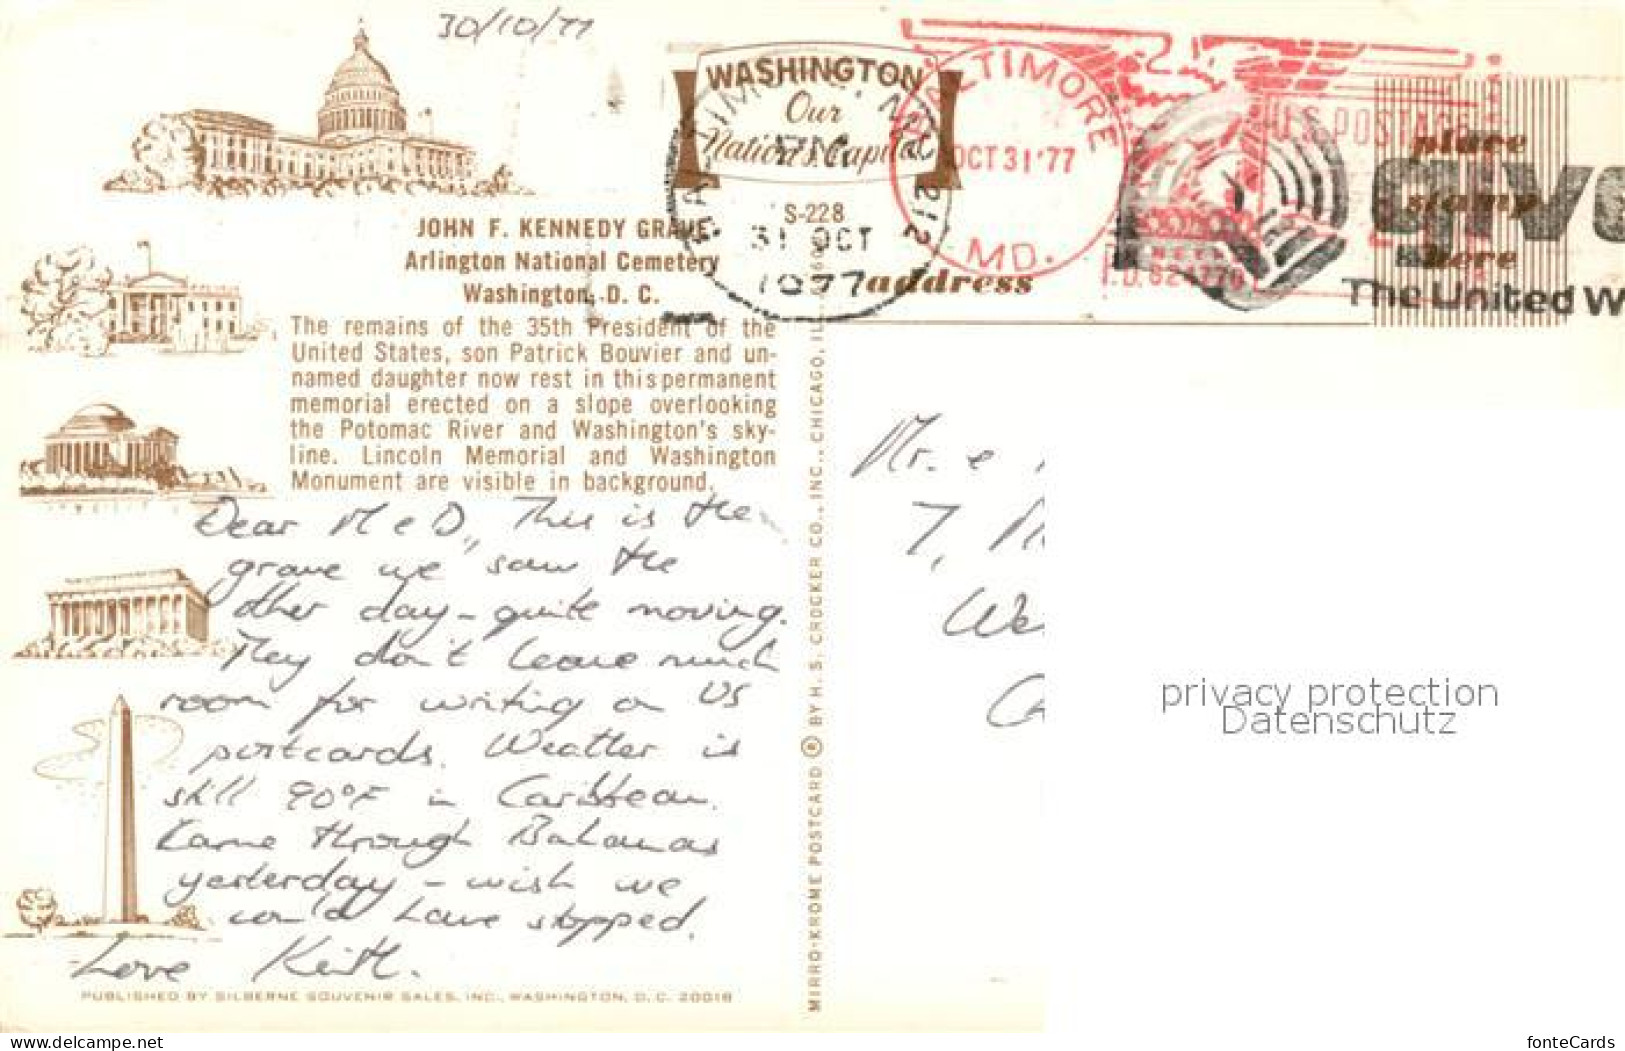 30/10/77
WASHINGTON
Our
Nation's Capital
S-228
JOHN F. KENNEDY GRAVE
Arlington National Cemetery
Washington, D. C.
The remains of the 35th President of the
United States, son Patrick Bouvier and un-
named daughter now rest in this permanent
memorial erected on a slope overlooking
the Potomac River and Washington's sky-
line. Lincoln Memorial and Washington
Monument are visible in background.
Dear M & D, This is the
grave we saw the
other day - quite moving.
They don't leave much
room for writing on US
postcards. Weather is
still 90°F in Caribbean.
Came through Bahamas
yesterday - wish we
could have stopped.
Love Keith.
PUBLISHED BY SILBERNE SOUVENIR SALES, INC., WASHINGTON, D. C. 20018
MIRRO-KROME POSTCARD ® BY H. S. CROCKER CO., INC., CHICAGO, ILL.
PM
31 OCT
1977
212
BALTIMORE
OCT 31 '77
MD.
U.S. POSTAGE
address
place
stamp
here
give
The United W
Mr. &
7,
We
privacy protection
Datenschutz
www.delcampe.net
fonteCards